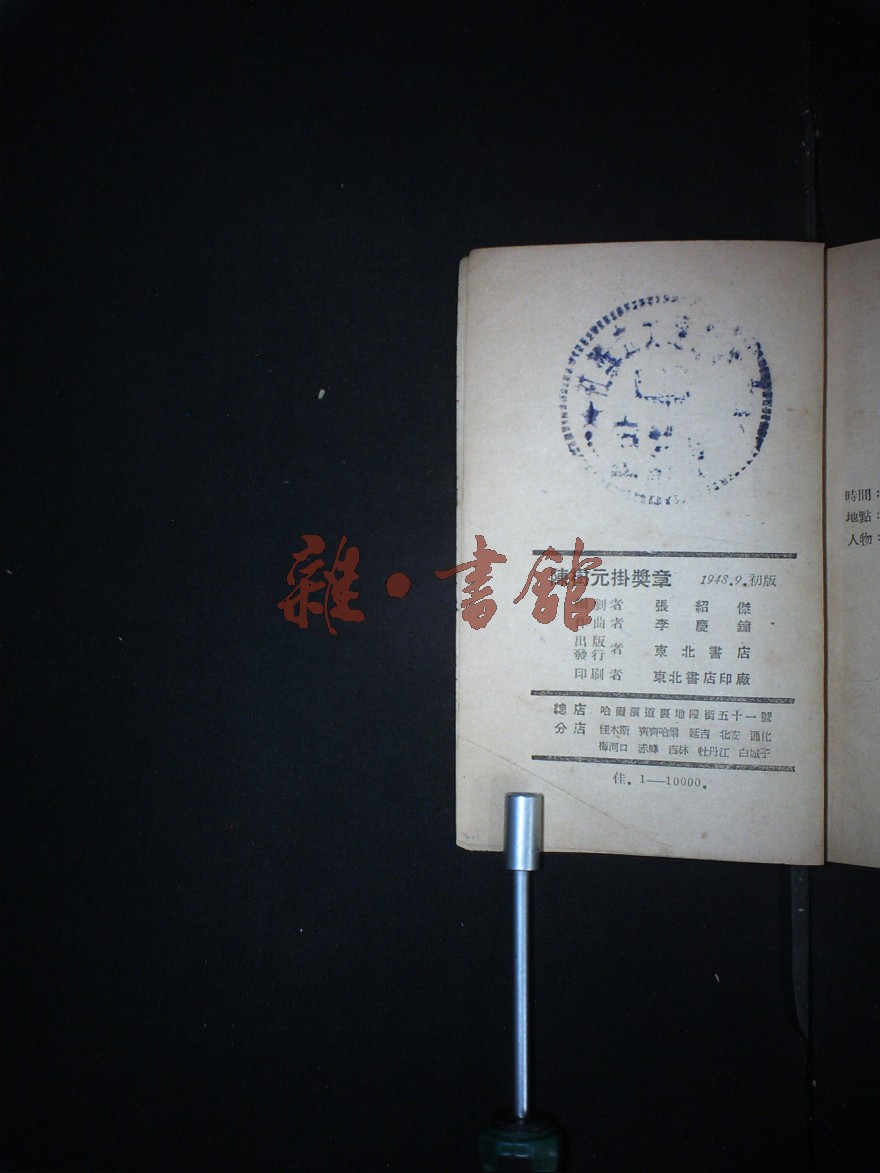 陳樹元掛獎章 1948.9.初版
編劇者 張紹傑
作曲者 李慶鐘
出版
發行者 東北書店
印刷者 東北書店印廠
總店 哈爾濱道裏地段街五十一號
分店 佳木斯 齊齊哈爾 延吉 北安 通化
梅河口 赤峰 吉林 牡丹江 白城子
佳.1—10000.
時間：
地點：
人物：
雜·書館